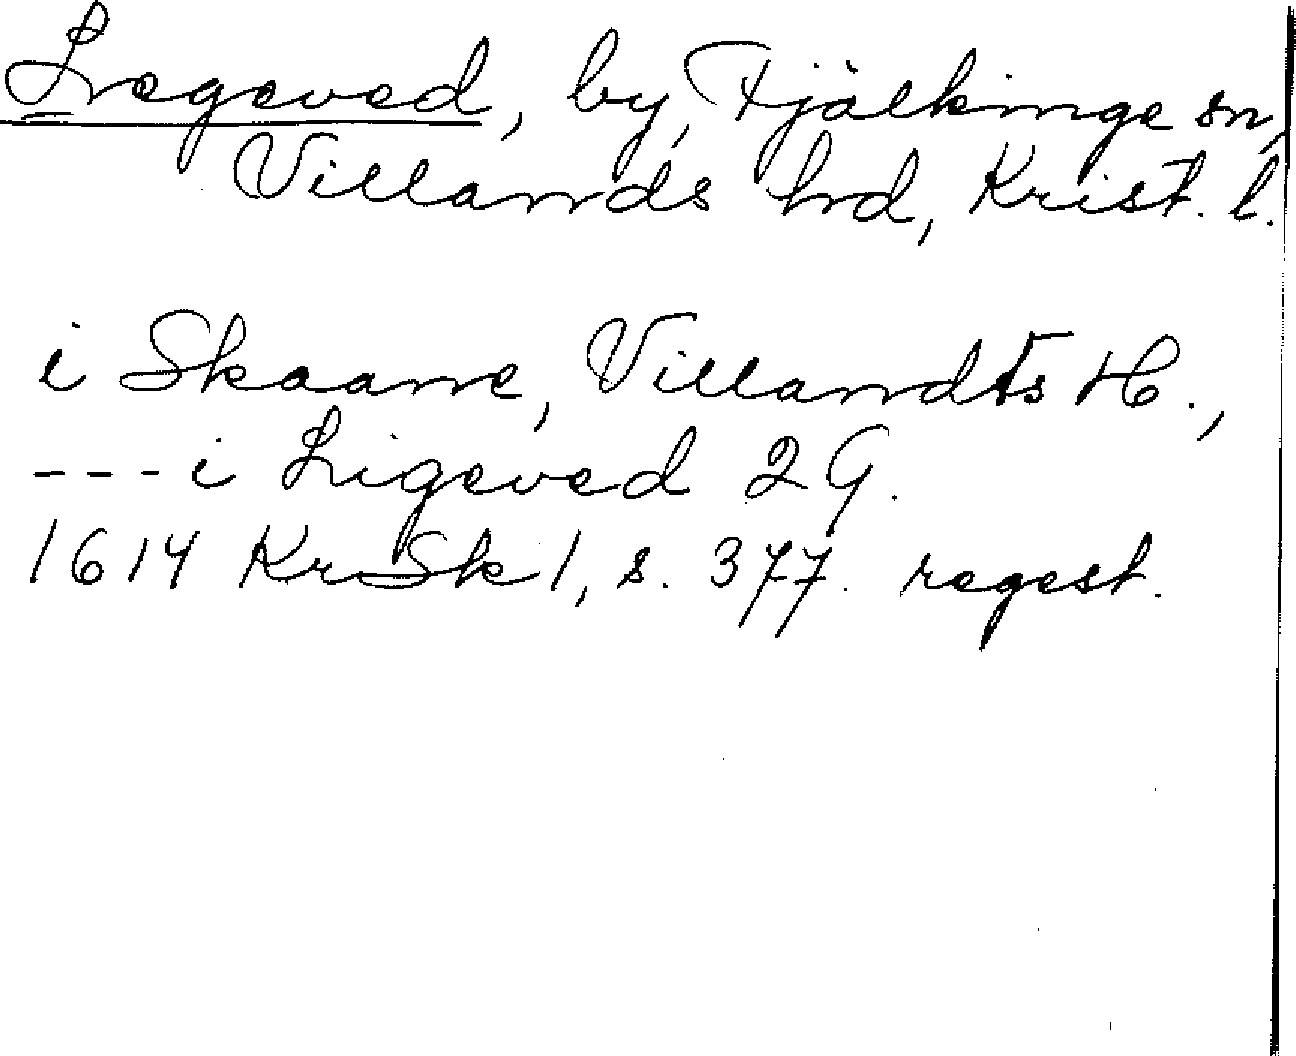 Lregeved, by, Fjälkinge sn,
Villands hrd, Krist. l.
i Skaane, Villandts H.,
--- i Ligeved 2 G.
1614 KrSk 1, s. 377. regest.